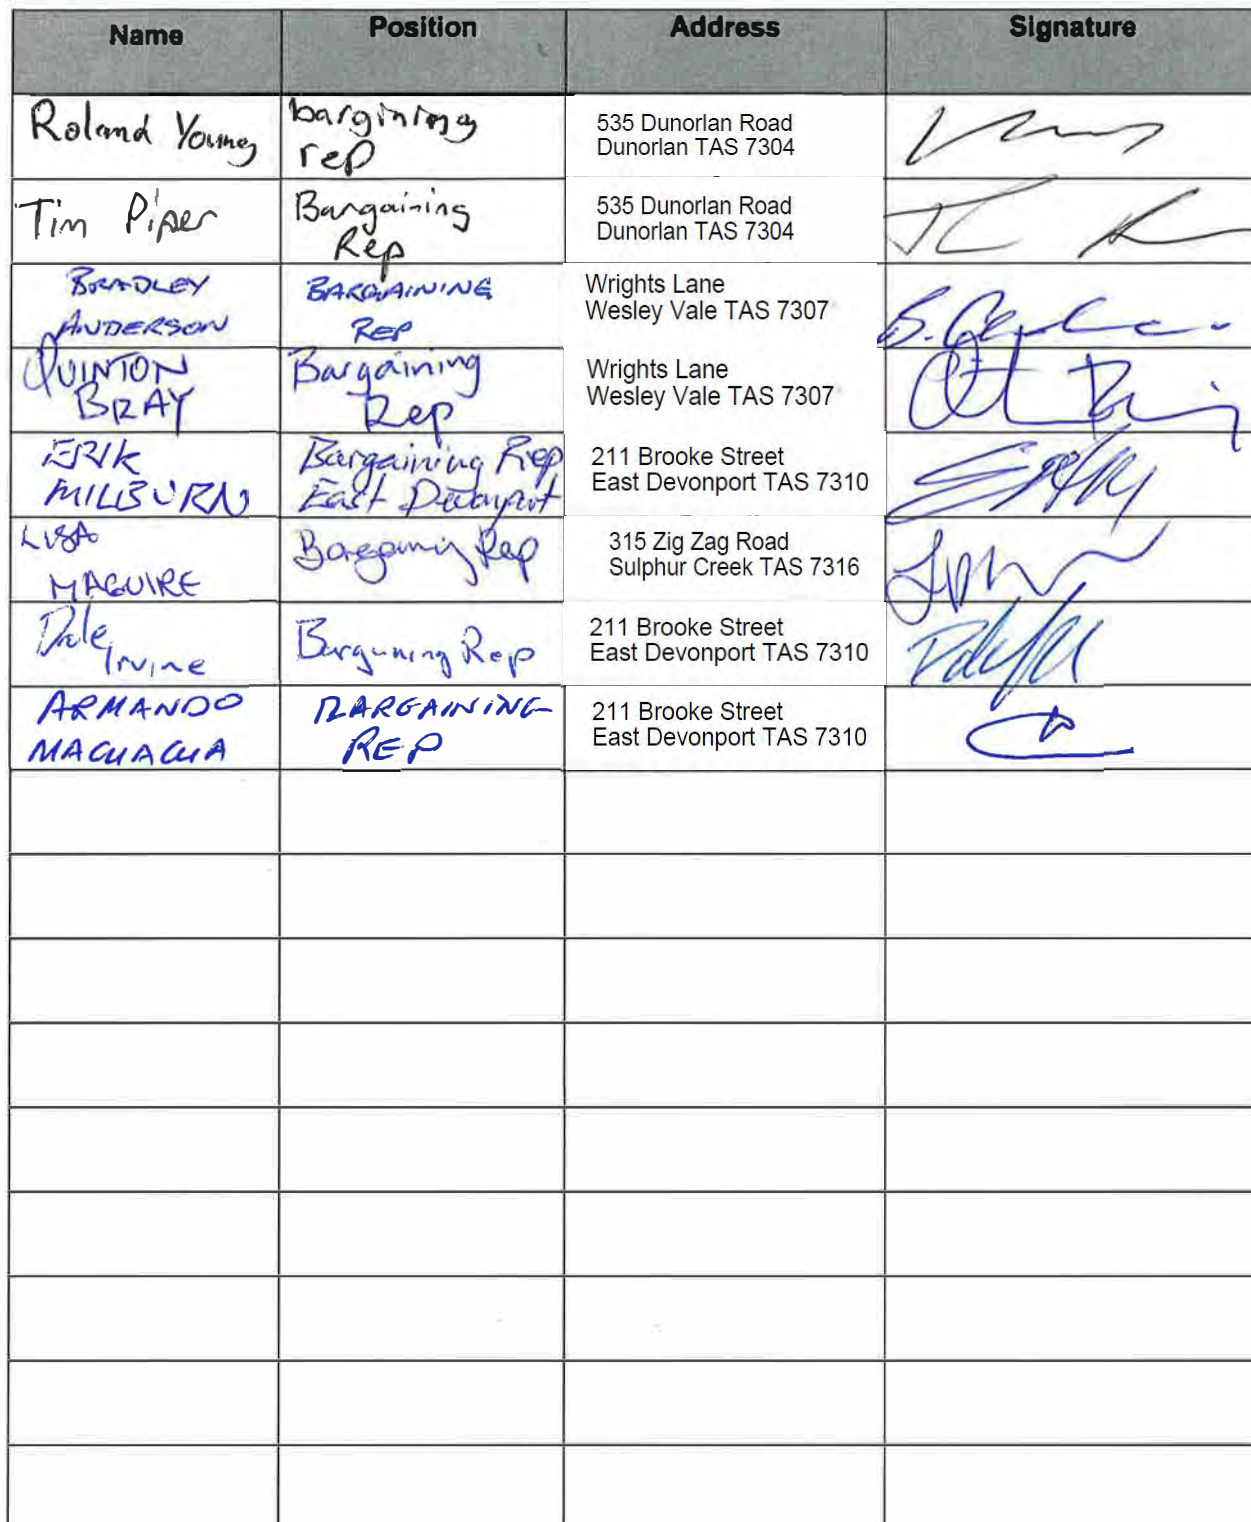 Name Position Address Signature
Roland Young
bargining
rep
535 Dunorlan Road
Dunorlan TAS 7304
Tim Piper
Bargaining
Rep
535 Dunorlan Road
Dunorlan TAS 7304
BRADLEY
ANDERSON
BARGAINING
REP
Wrights Lane
Wesley Vale TAS 7307
QUINTON
BRAY
Bargaining
Rep
Wrights Lane
Wesley Vale TAS 7307
ERIK
MILBURN
Bargaining Rep
East Devonport
211 Brooke Street
East Devonport TAS 7310
LISA
MAGUIRE
Rep
315 Zig Zag Road
Sulphur Creek TAS 7316
Dale
Irvine
Rep
211 Brooke Street
East Devonport TAS 7310
ARMANDO
BARGAINING
REP
211 Brooke Street
East Devonport TAS 7310